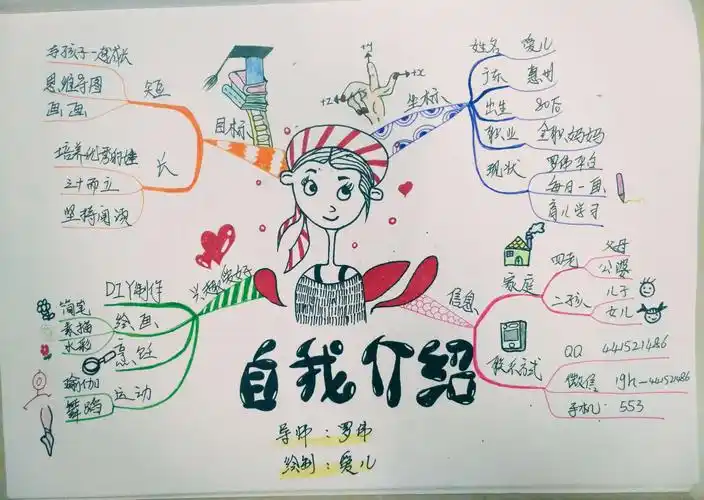 自我介绍
导师：罗伟
绘制：爱儿
坐标
姓名 爱儿
广东 惠州
出生 80后
职业 全职妈妈
现状
罗伟平台
每日一画
育儿学习
信息
家庭
四老
父母
公婆
二孩
儿子
女儿
联系方式
QQ 441521486
微信 19h-441521486
手机: 553
兴趣爱好
DIY制作
绘画
简笔
素描
水彩
烹饪
运动
瑜伽
舞蹈
目标
短
与孩子一起成长
思维导图
画画
长
三十而立
坚持阅读
+y
+x
+z